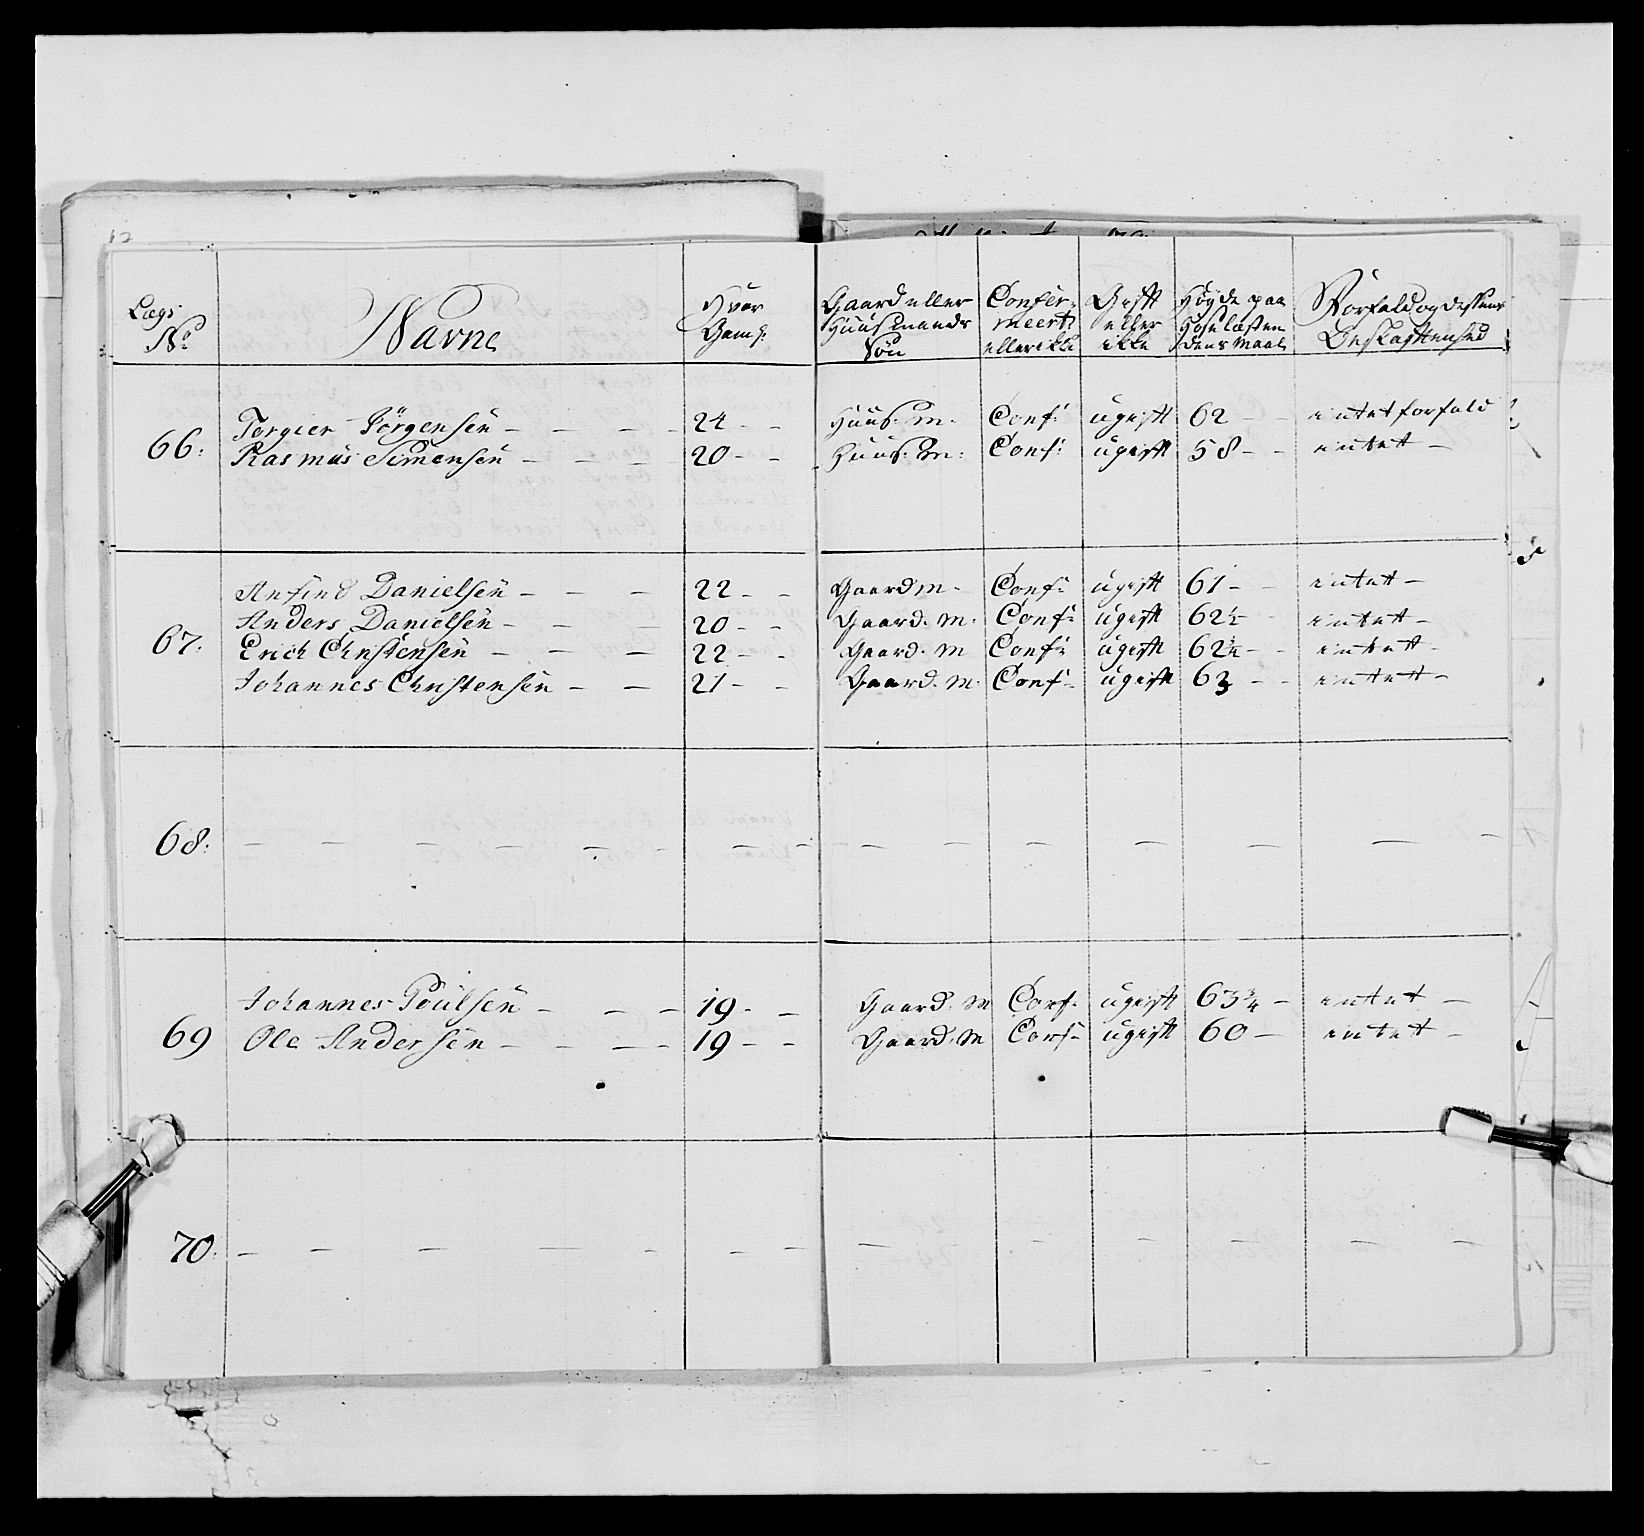 Lægs No | Navne | Hvor Gaml: | Gaard eller Huusmands Søn | Confermeert eller ikke | Gift eller ikke | Høyde paa Hoselæsten dens Maal | Forfald og dessens Beskaffenhed
66: | Torgier Jörgensen - - - - | 24 - - | Huus. M. | Conf: | ugift | 62 - - | intet forfald
Rasmus Simensen - - - - | 20 - - | Huus: M: | Conf: | ugift | 58 - - | intet -
67: | Anfind Danielsen - - - | 22 - - | Gaard M. | Conf: | ugift | 61 - - | intet -
Anders Danielsen - - - | 20 - - | Gaard. M. | Conf: | ugift | 62½ | intet -
Erich Christensen - - - | 22 - - | Gaard. M | Conf: | ugift | 62½ - - | intet -
Johannes Christensen - - | 21 - - | Gaard. M. | Conf: | ugift | 63 - - | intet -
68: | - - - - - - | - - | - - | - | - | - | - -
69 | Johannes Poulsen - - - | 19 - - | Gaard. M | Conf. | ugift | 63¾ - | intet -
Ole Andersen - - - - | 19 - - | Gaard. M | Conf: | ugift | 60 - | intet -
70: | - - - - - | - - | - | - | - | - | - -